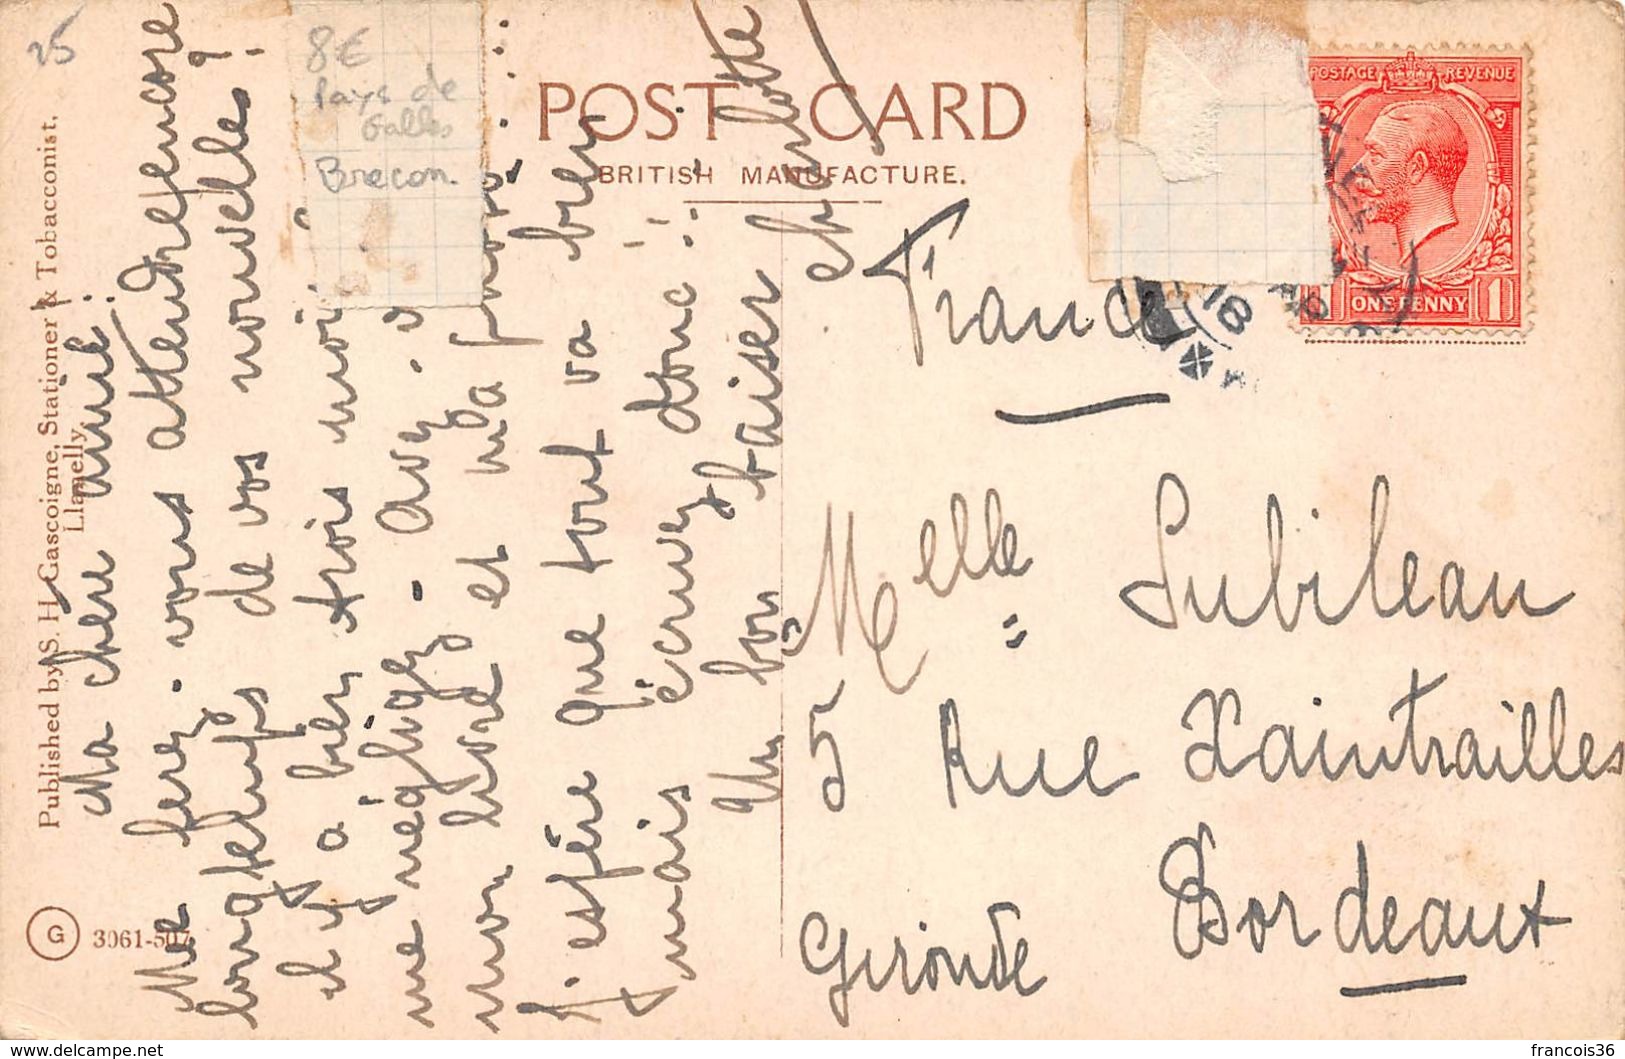 25
8€
Pays de
Galles
Brecon
POST CARD
BRITISH MANUFACTURE.
POSTAGE REVENUE
1 ONE PENNY 1
18
Published by S. H. Gascoigne, Stationer & Tobacconist,
Llanelly
G 3061-507
Ma chère amie!
Me ferez-vous attendre encore
longtemps de vos nouvelles?!
il y a bien trois mois
me négligez-. Avez-
mon livre et ma photo
J'espère que tout va bien
mais écrivez donc!!
Un bon baiser
Charlotte
France
Melle Lubileau
5 Rue Xaintrailles
Bordeaux
Gironde
francois36